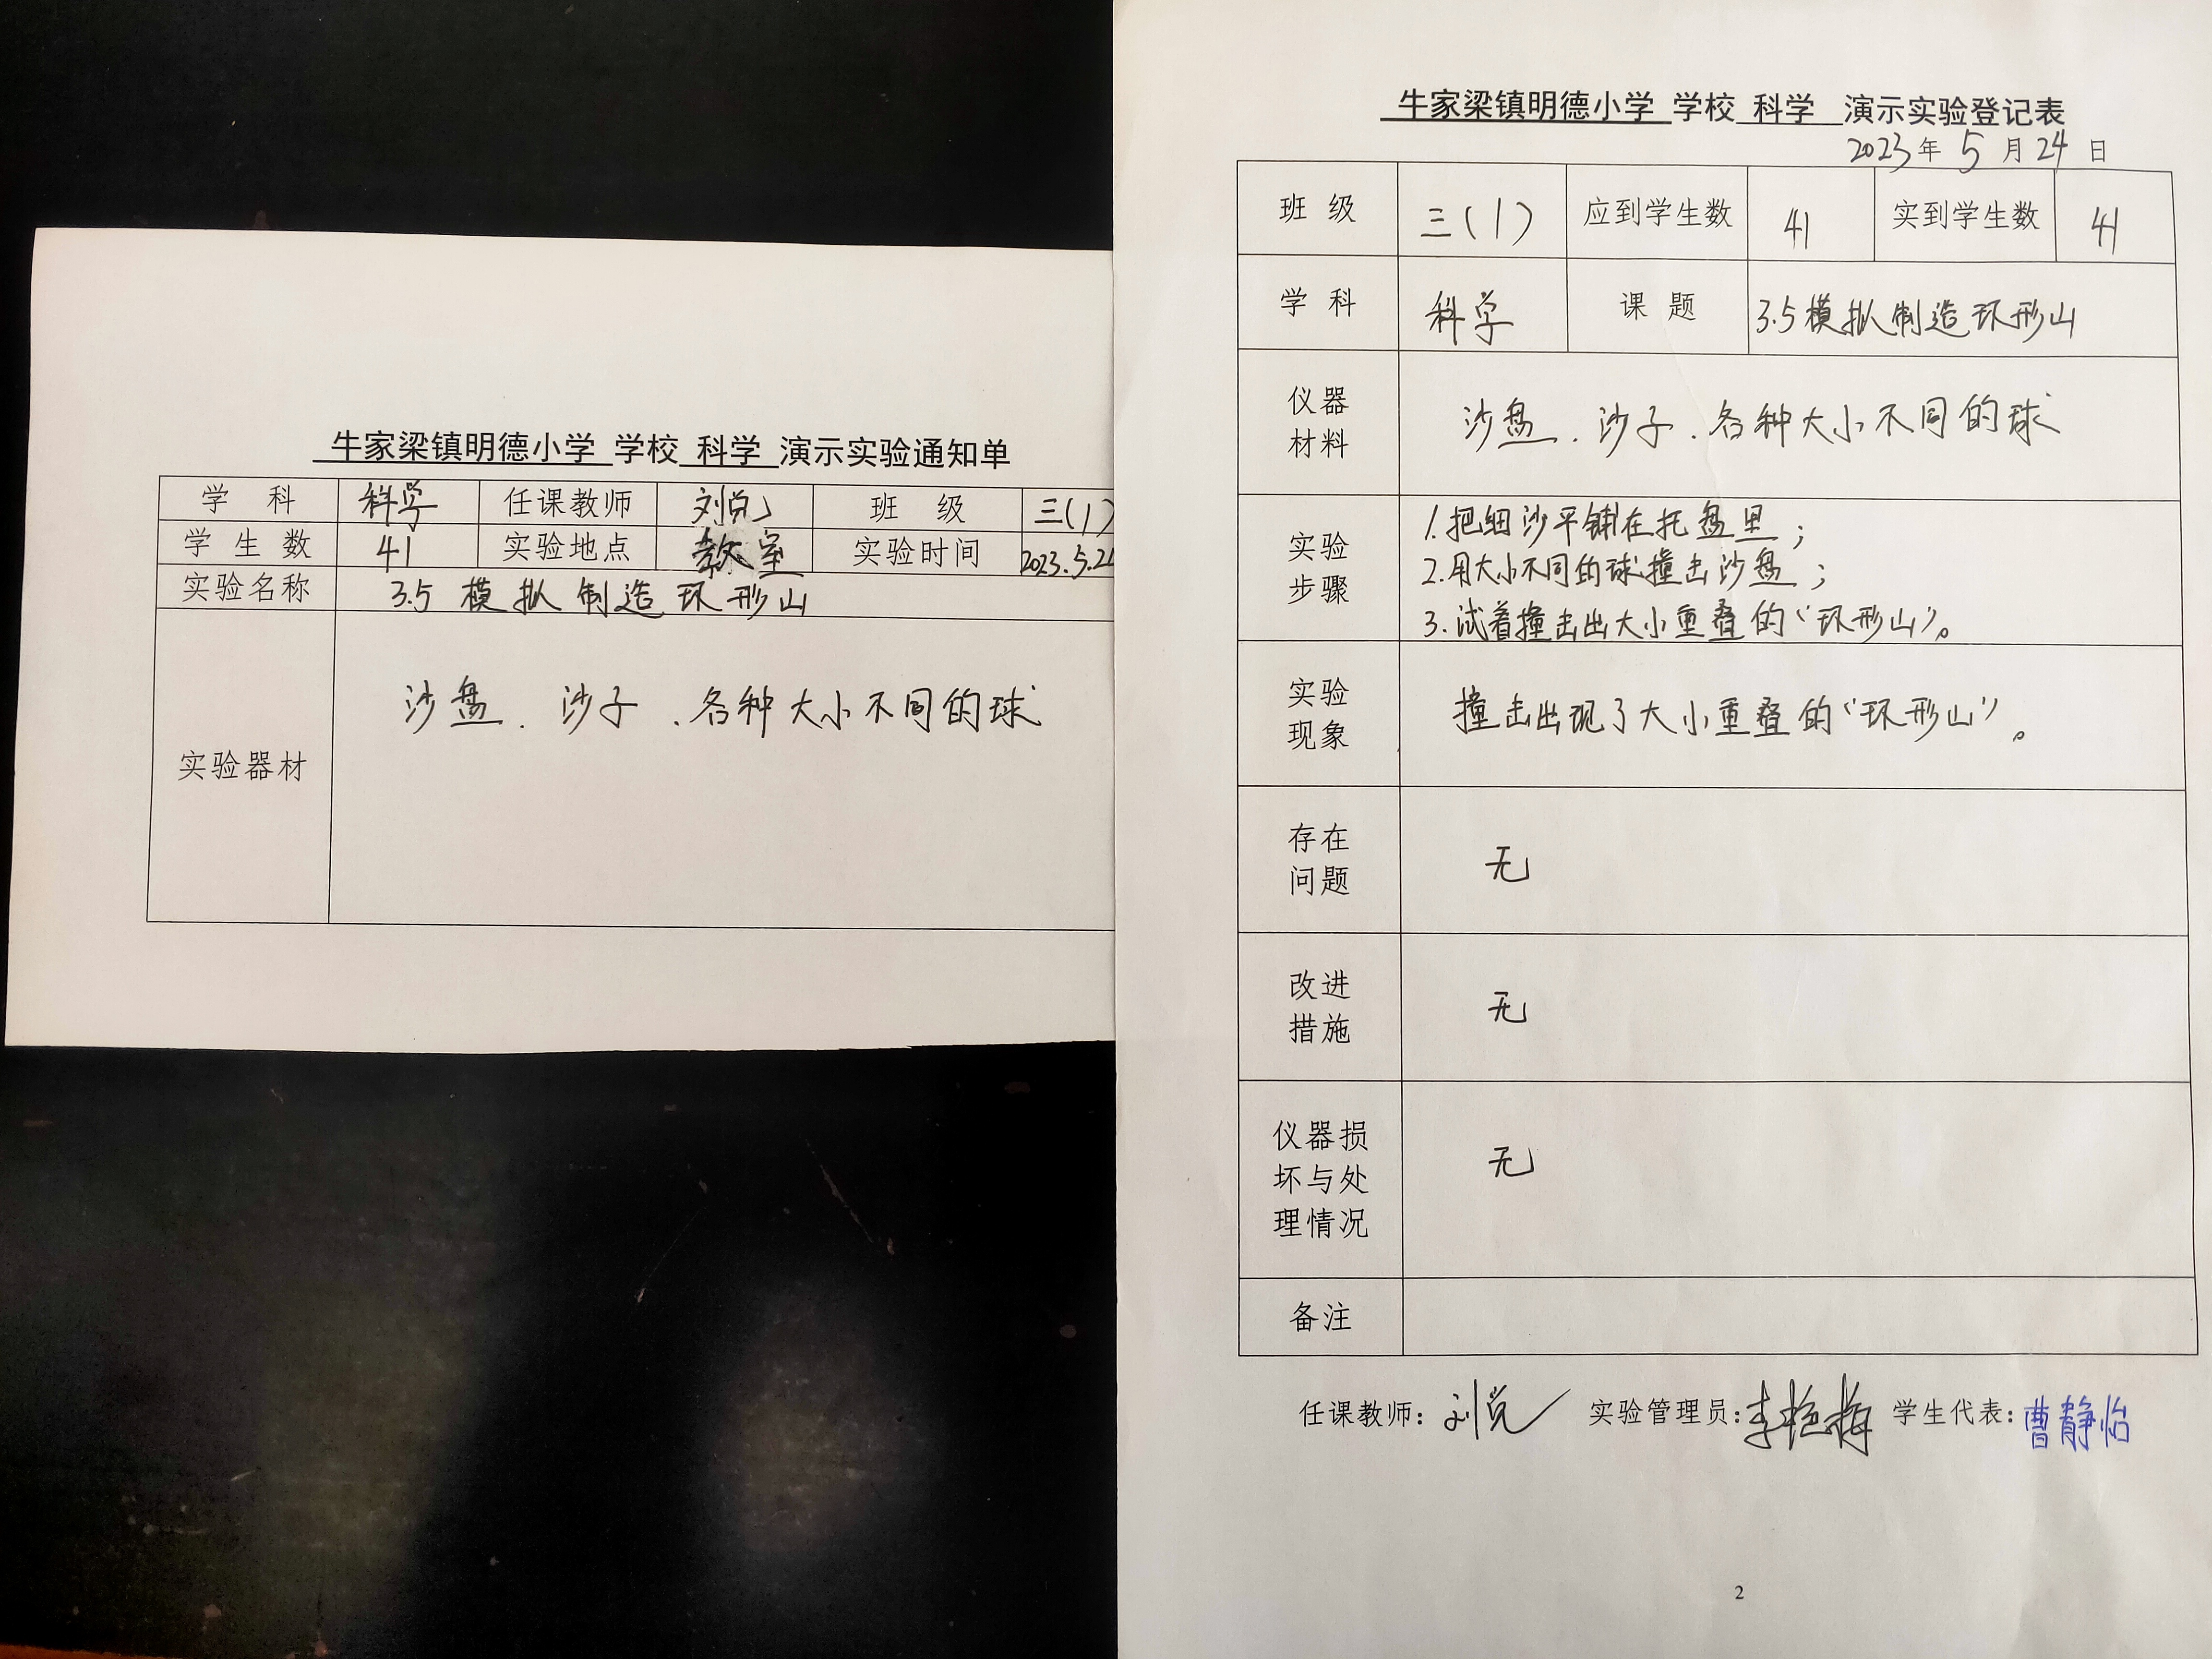 牛家梁镇明德小学 学校 科学 演示实验通知单
学 科 科学 任课教师 刘悦 班 级 三(1)
学 生 数 41 实验地点 教室 实验时间 2023.5.2
实验名称 3.5 模拟制造环形山
实验器材 沙盘、沙子、各种大小不同的球
牛家梁镇明德小学 学校 科学 演示实验登记表
2023年 5 月 24 日
班 级 三(1) 应到学生数 41 实到学生数 41
学 科 科学 课 题 3.5模拟制造环形山
仪器
材料
沙盘、沙子、各种大小不同的球
实验
步骤
1.把细沙平铺在托盘里；
2.用大小不同的球撞击沙盘；
3.试着撞击出大小重叠的“环形山”。
实验
现象
撞击出现了大小重叠的“环形山”。
存在
问题
无
改进
措施
无
仪器损
坏与处
理情况
无
备注
任课教师：刘悦 实验管理员：李艳梅 学生代表：曹静怡
2